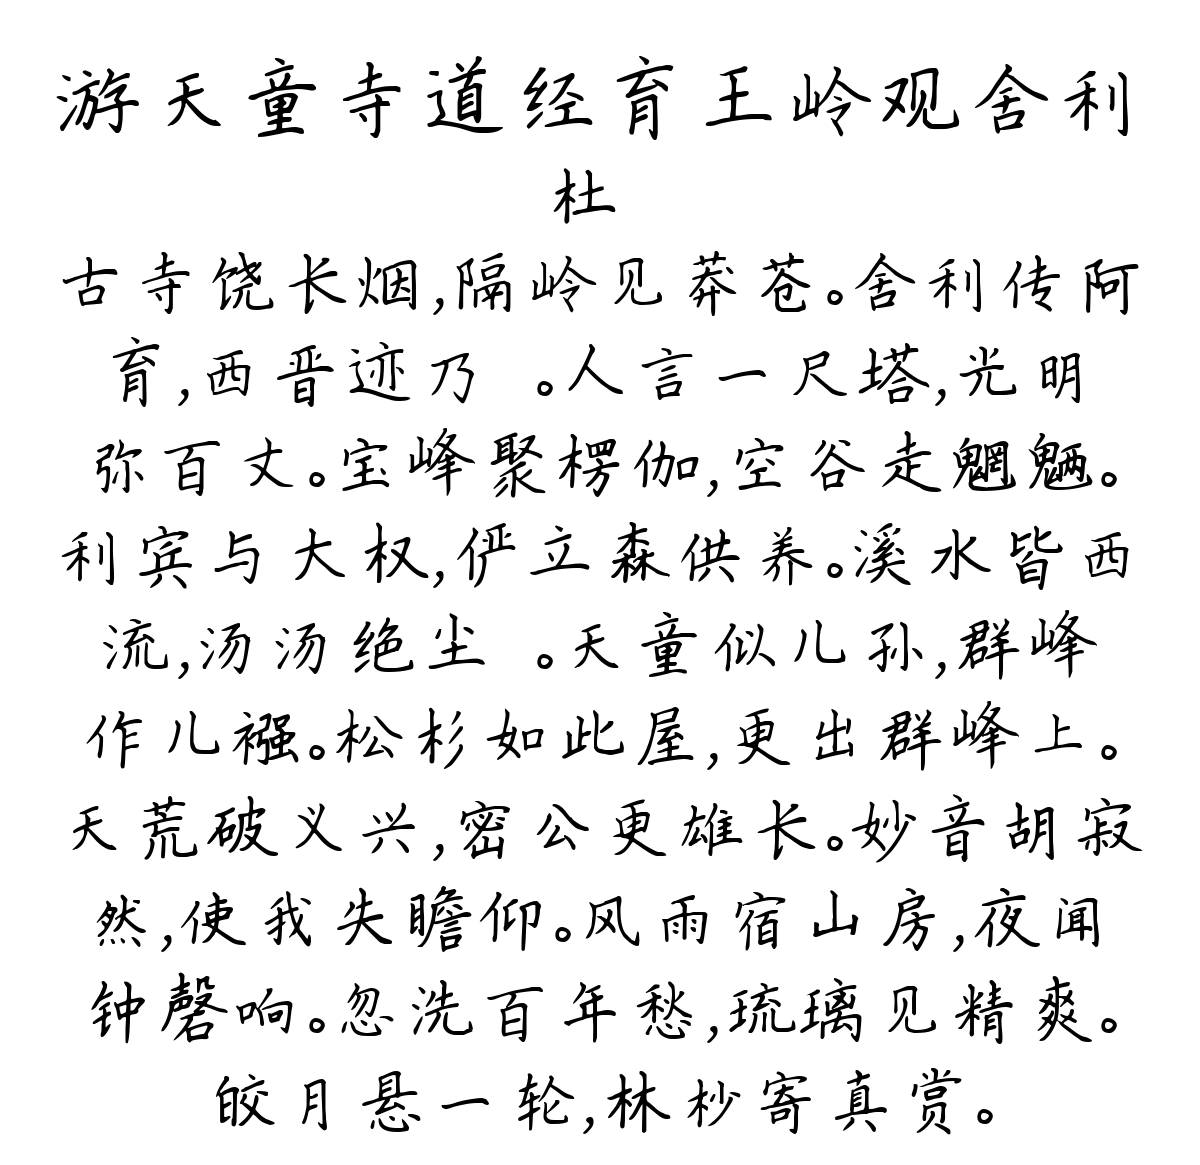 游天童寺道经育王岭观舍利
杜
古寺饶长烟,隔岭见莽苍。舍利传阿
育,西晋迹乃 。人言一尺塔,光明
弥百丈。宝峰聚楞伽,空谷走魍魉。
利宾与大权,俨立森供养。溪水皆西
流,汤汤绝尘 。天童似儿孙,群峰
作儿襁。松杉如此屋,更出群峰上。
天荒破义兴,密公更雄长。妙音胡寂
然,使我失瞻仰。风雨宿山房,夜闻
钟磬响。忽洗百年愁,琉璃见精爽。
皎月悬一轮,林杪寄真赏。